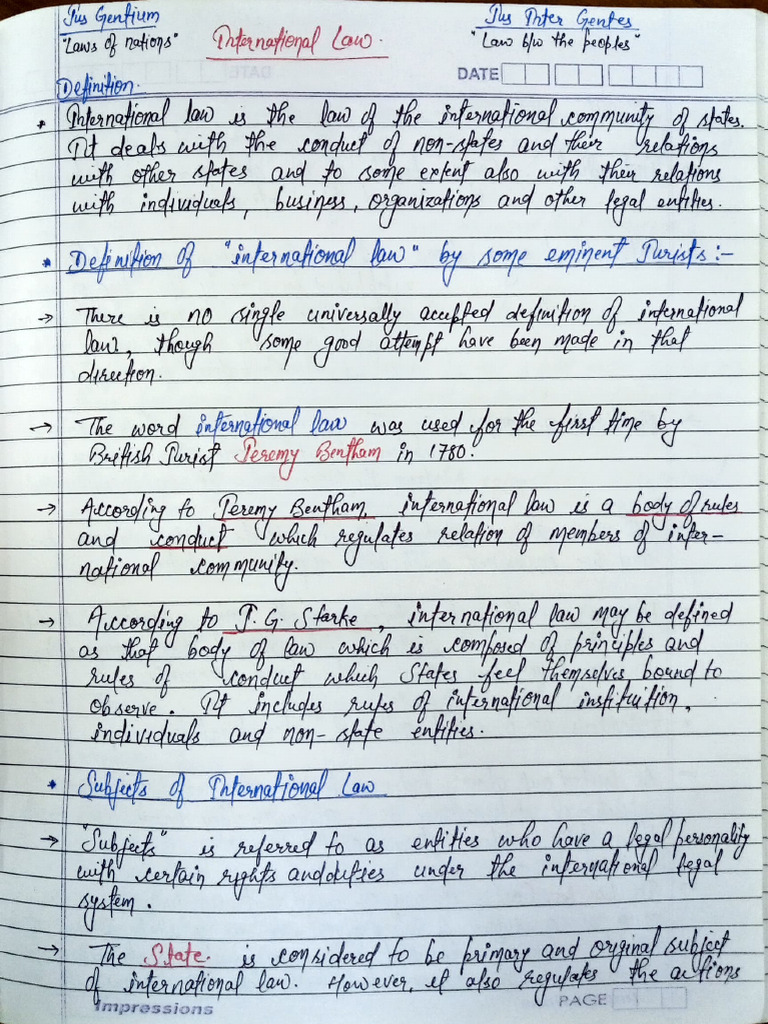 Jus Gentium
"Laws of nations"
International Law.
Jus Inter Gentes
"Law b/w the peoples"
DATE
Definition.
* International law is the law of the international community of states.
It deals with the conduct of non-states and their relations
with other states and to some extent also with their relations
with individuals, business, organizations and other legal entities.
* Definition of "international law" by some eminent Jurists :-
→ There is no single universally accepted definition of international
law, though some good attempt have been made in that
direction.
→ The word international law was used for the first time by
British Jurist Jeremy Bentham in 1780.
→ According to Jeremy Bentham, international law is a body of rules
and conduct which regulates relation of members of inter-
national community.
→ According to J. G. Starke, international law may be defined
as that body of law which is composed of principles and
rules of conduct which States feel themselves bound to
observe. It includes rules of international instituition,
individuals and non-state entities.
* Subjects of International Law
→ "Subjects" is referred to as entities who have a legal personality
with certain rights and duties under the international legal
system.
→ The State. is considered to be primary and original subject
of international law. However, it also regulates the actions
Impressions
PAGE